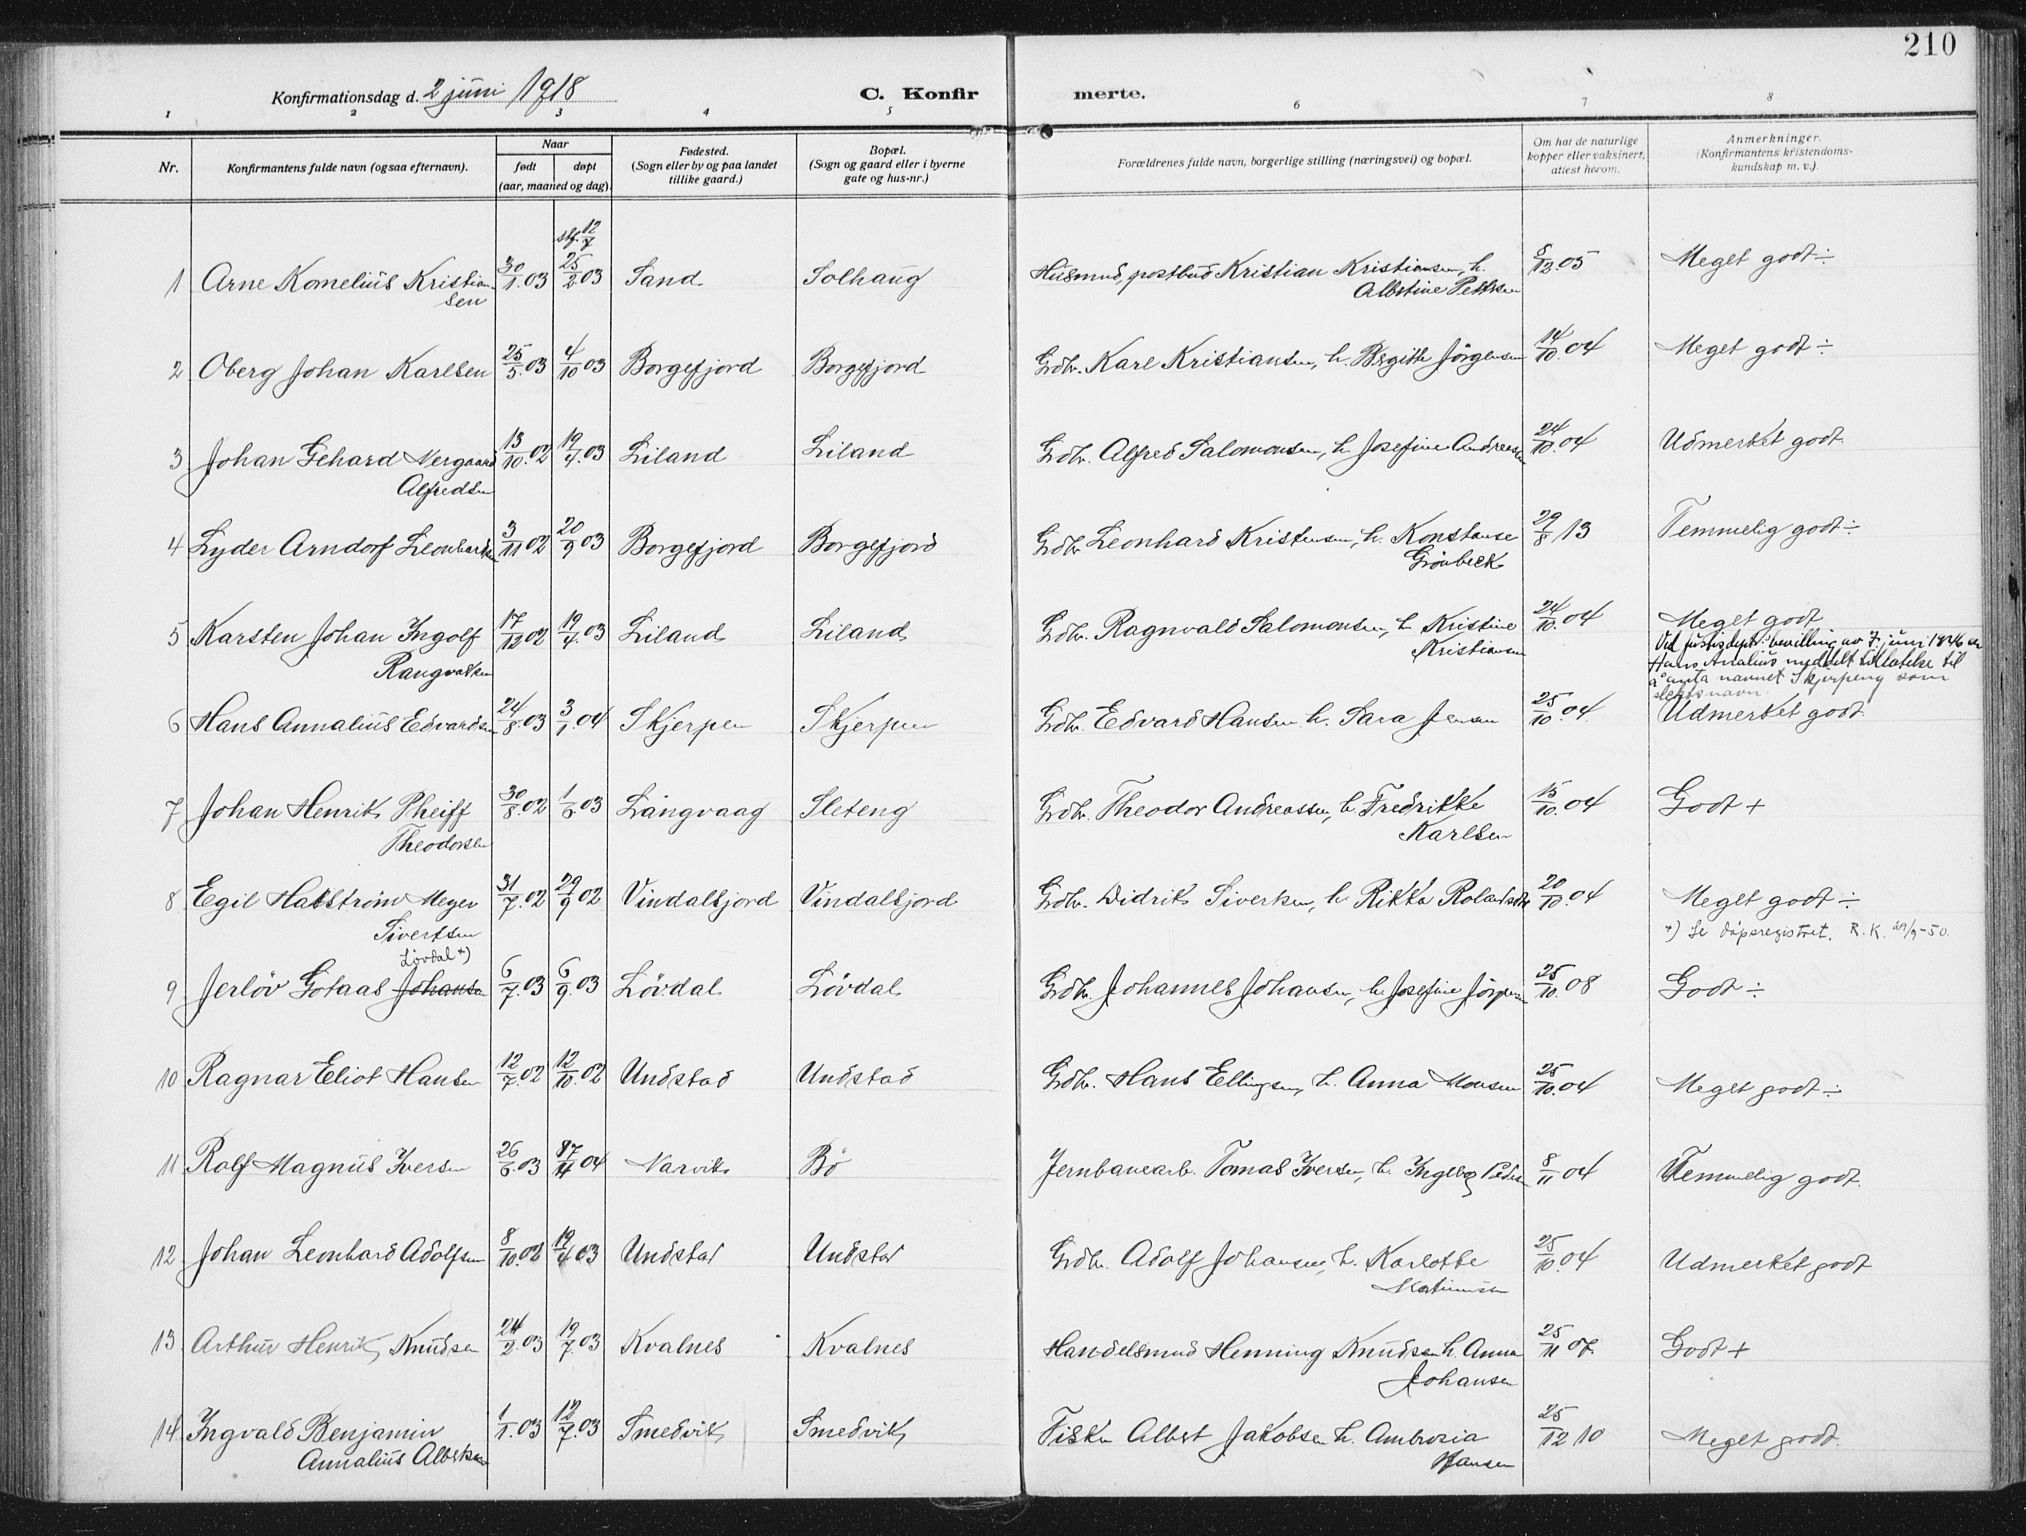 210
Konfirmationsdag d. 2 juni 1918 C. Konfir merte.
1 2 3 4 5 6 7 8
Nr. Konfirmantens fulde navn (ogsaa efternavn). Naar født døpt (aar, maaned og dag). Fødested. (Sogn eller by og paa landet tillike gaard.) Bopæl. (Sogn og gaard eller i byerne gate og hus-nr.) Forældrenes fulde navn, borgerlige stilling (næringsvei) og bopæl. Om hat de naturlige kopper eller vaksinert, attest herom. Anmerkninger. (Konfirmantens kristendoms-kundskap m. v.).
stf. 12/7
1 Arne Kornelius Kristian 30/1.03 25/2.03 Sand Solhaug Husmnd, postbud Kristian Kristiansen, h. 5/12.05 Meget godt ÷
sen Albertine Pettersen
2 Oberg Johan Karlsen 25/5.03 4/10 03 Borgefjord Borgefjord Grdbr. Karl Kristiansen, h. Bergitte Jörgensen 14/10.04 Meget godt ÷
3 Johan Gehard Nergaard 13/10.02 19/4.03 Liland Liland Grdbr. Alfred Salomonsen, h. Josefine Andreassen 24/10.04 Udmerket godt.
Alfredsen
4 Lyder Arndorf Leonhardsen 3/11 02 20/9 03 Borgefjord Borgefjord Grdbr. Leonhard Kristensen, h. Konstanse 29/8 13 Temmelig godt ÷
Grönbeck
5 Karsten Johan Ingolf 17/12 02 19/4.03 Liland Liland Grdbr. Ragnvald Salomonsen, h. Kristine 24/10.04 Meget godt
Rangvaldsen Kristiansen
Ved justisdept.s bevilling av 7. juni 1946 er
Hans Analius meddelt tillatelse til
å anta navnet Skjerpeng som
slektsnavn.
6 Hans Annalius Edvardsen 24/8.03 3/1.04 Skjerpen Skjerpen Grdbr. Edvard Hansen h. Sara Jensen 25/10.04. Udmerket godt.
7 Johan Henrik Pheiff 30/8.02 1/6.03 Långvaag Sleteng Grdbr. Theodor Andreassen, h. Fredrikke 15/10.04 Godt +
Theodorsen Karlsen
8 Egil Hallström Meyer 31/7.02 29/9 02 Vindalsfjord Vindalsfjord Grdbr. Didrik Sivertsen, h. Rikka Rolandsdtr 20/10.04 Meget godt ÷
Sivertsen
Lövdal +)
+) Se dåpsregistret. R. K. 29/9-50.
9 Jerlöv Gotaas Johansen 6/7.03 6/9.03 Lövdal Lövdal Grdbr. Johannes Johansen, h. Josefine Jörgensen 25/10.08 Godt ÷
10 Ragnar Eliot Hansen 12/7.02 12/10.02 Undstad Undstad Grdbr. Hans Ellingsen, h. Anna Monsen 25/10.04 Meget godt ÷
11 Rolf Magnus Iversen 26/6.03 87/4 04 Narvik Bö Jernbanearb. Tomas Iversen, h. Ingeborg Pedersen 8/11 04 Temmelig godt.
12 Johan Leonhard Adolfsen 8/10.02 19/4 03 Undstad Undstad Grdbr. Adolf Johansen, h. Karlotte 25/10.04 Udmerket godt
Martinussen
13 Arthur Henrik Knudsen 24/2.03 19/7.03 Kvalnes Kvalnes Handelsmnd Henning Knudsen h. Anna 25/11 07. Godt +
Johansen
14 Ingvald Benjamin 1/1.03 12/7.03 Smedvik Smedvik Fisker Albert Jakobsen h. Ambrosia 25/12 10 Meget godt.
Annalius Albertsen Hansen